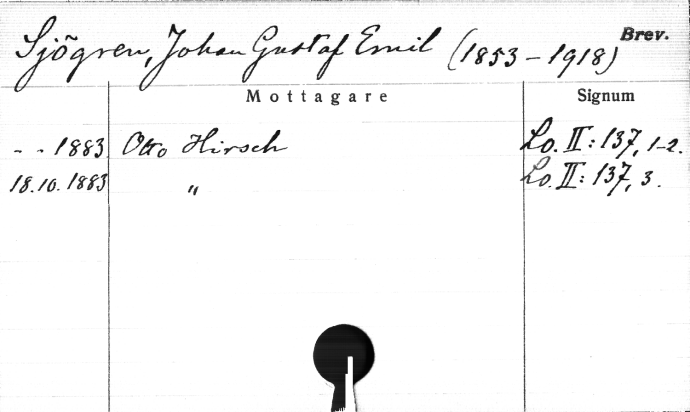 Sjögren, Johan Gustaf Emil (1853–1918) Brev.
Mottagare Signum
- - 1883 Otto Hirsch Lo. II: 137, 1-2.
18.10. 1883 " Lo. II: 137, 3.